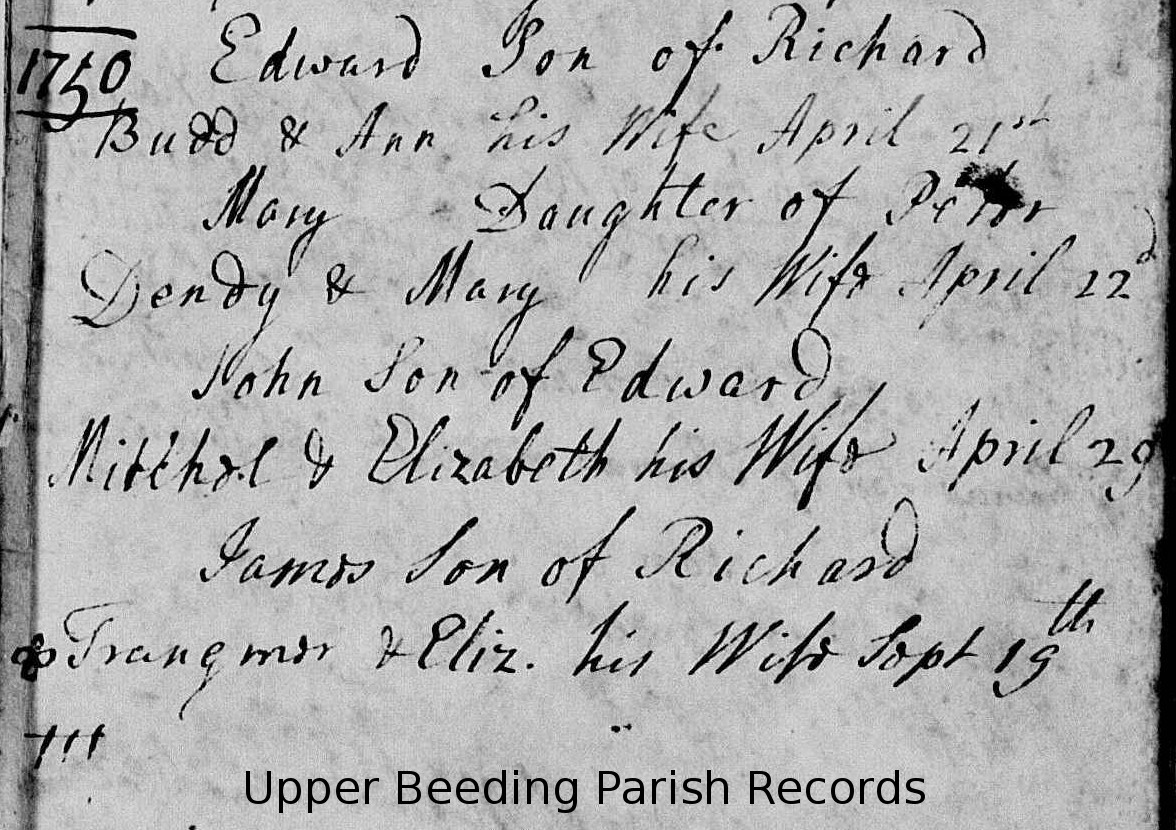 1750 Edward Son of Richard
Budd & Ann his Wife April 21st
Mary Daughter of Peter
Dendy & Mary his Wife April 22d
John Son of Edward
Mitchel & Elizabeth his Wife April 29
James Son of Richard
Trangmer & Eliz. his Wife Sept 19th
Upper Beeding Parish Records